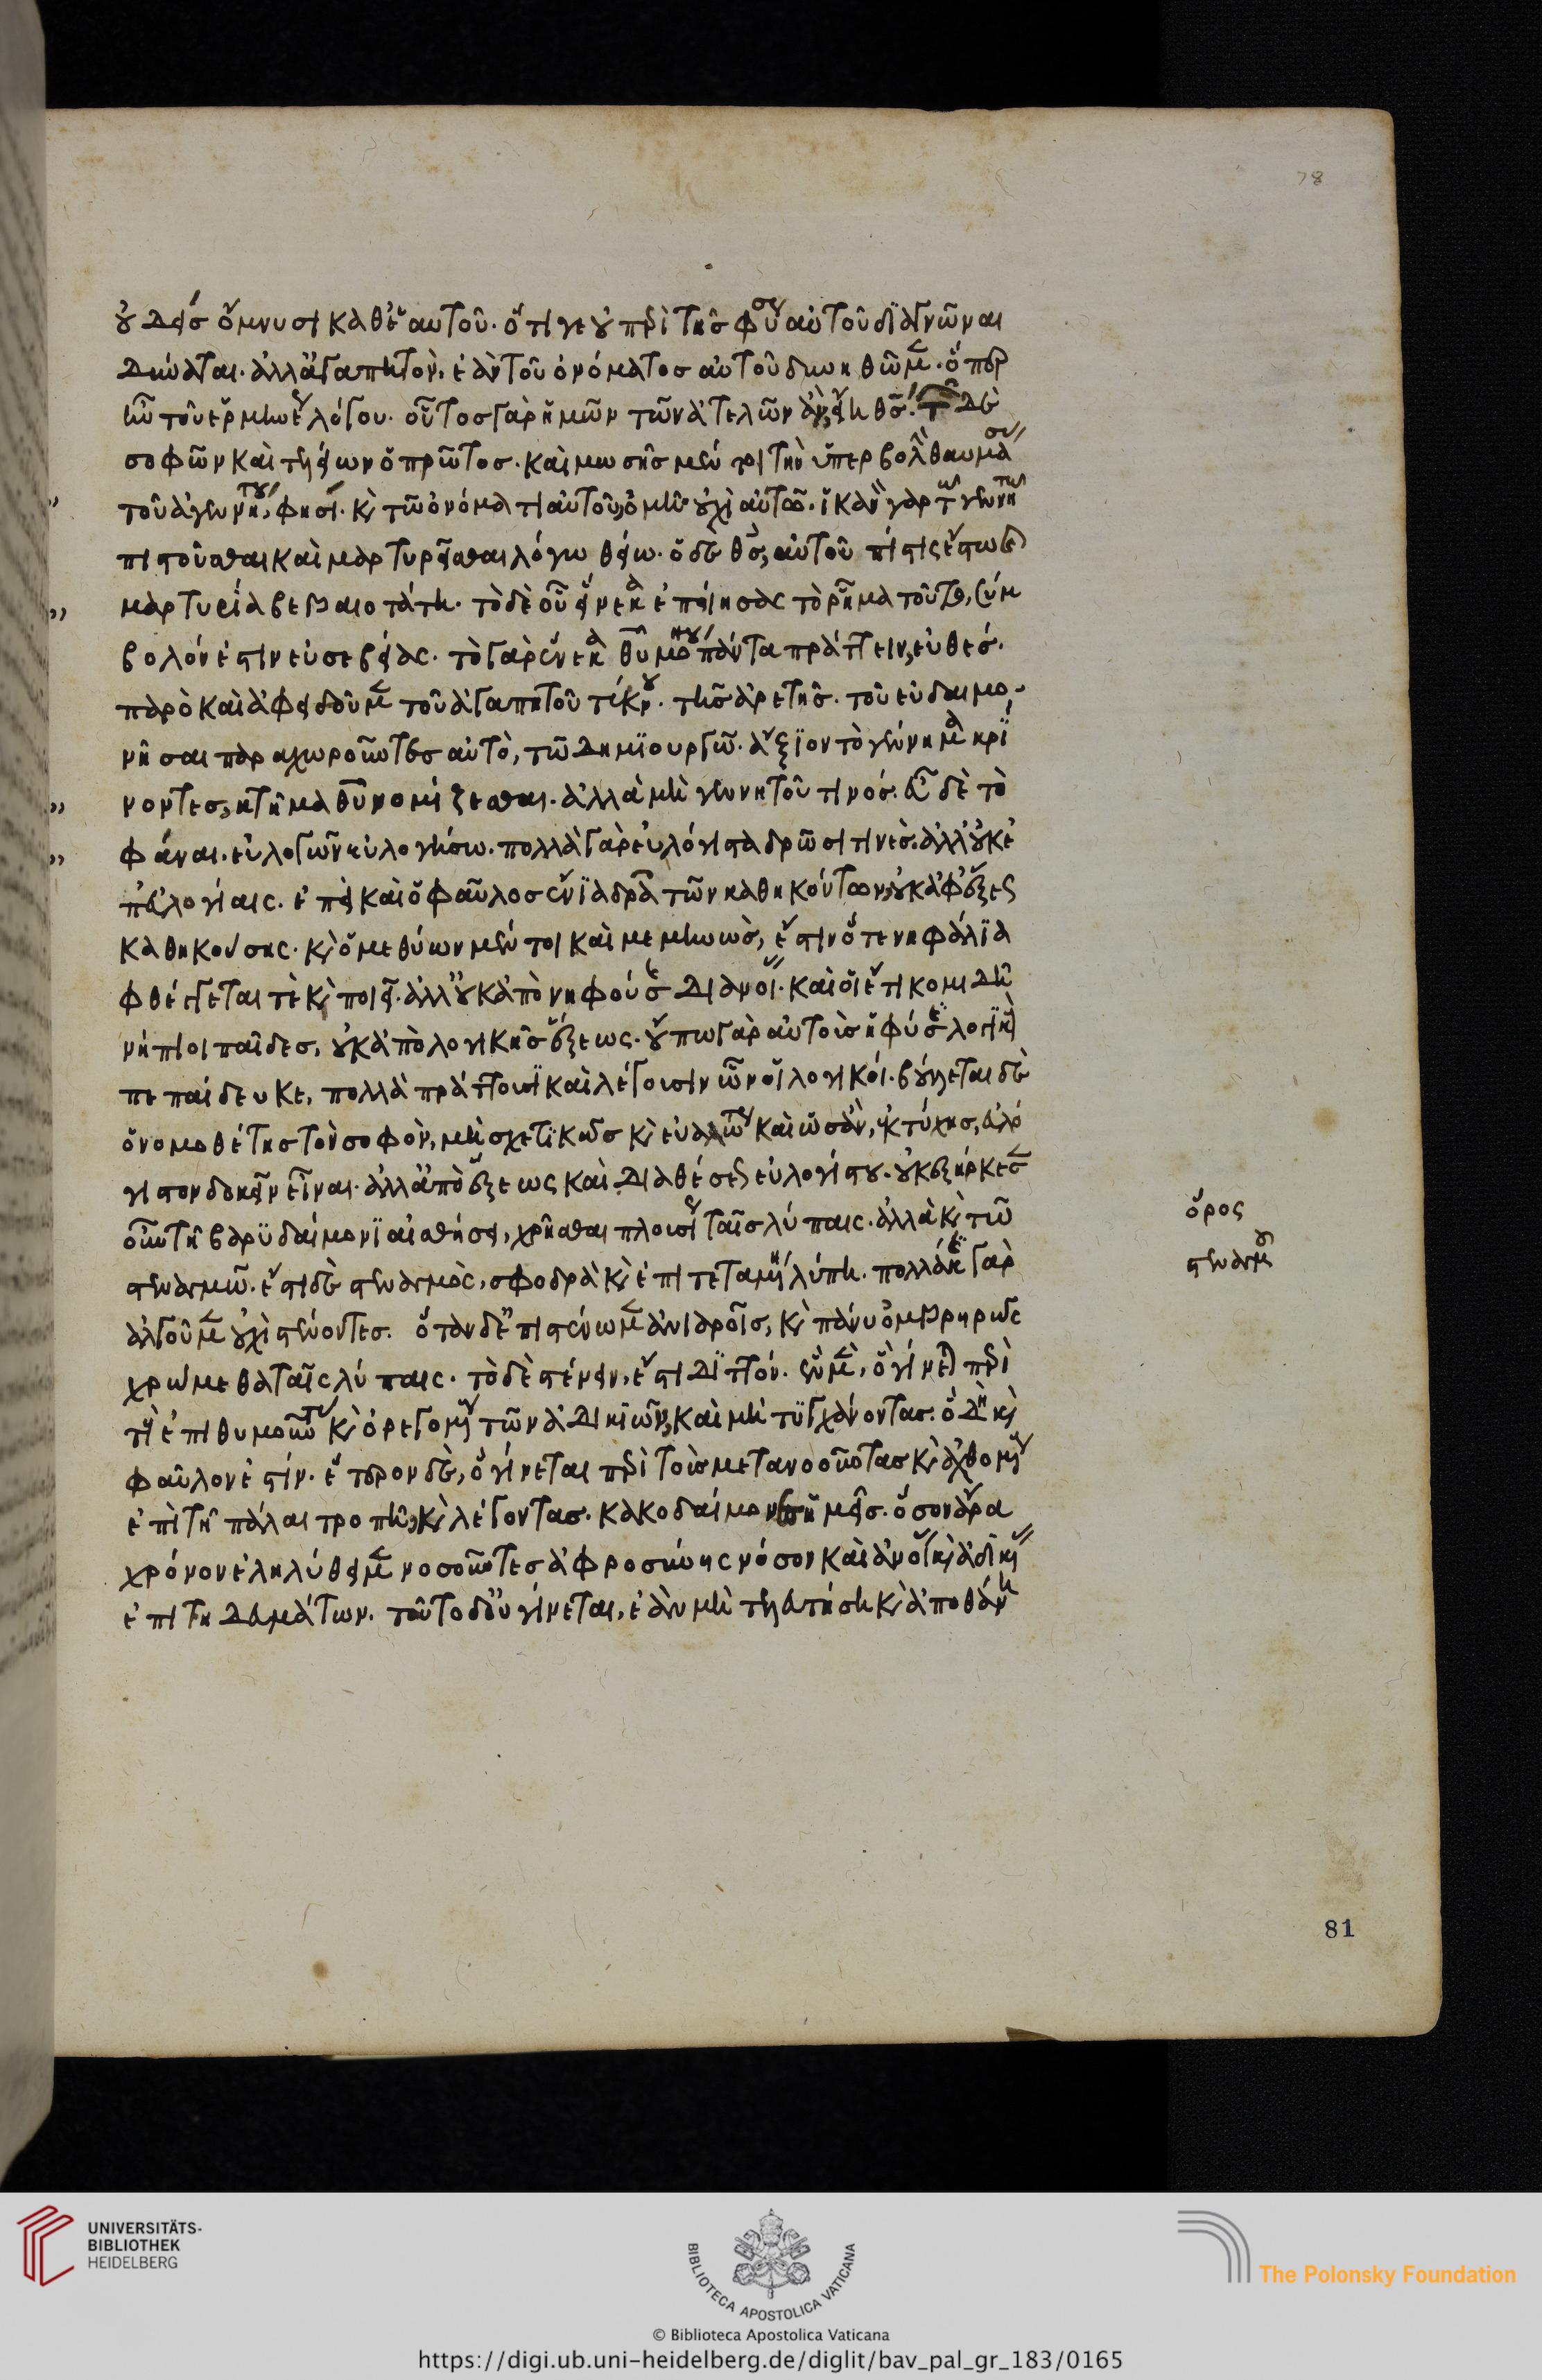 οὐδεὶς ὄμνυσι καθ' ἑαυτοῦ. ὅτι γε οὐ περὶ τῆς φύσεως αὐτοῦ διαγνῶναι
δύναται. ἀλλ' ἀγαπητὸν, ἐὰν τοῦ ὀνόματος αὐτοῦ δυνηθῶμεν. ὅπερ
ἦν τοῦ ἑρμηνέως λόγου. οὗτος γὰρ ἡμῶν τῶν ἀτελῶν ἂν εἴη θεός. τῶν δὲ
σοφῶν καὶ τελείων ὁ πρῶτος. καὶ μωσῆς μέντοι τὴν ὑπερβολὴν θαυμάσας
τοῦ ἀγεννήτου, φησί. καὶ τῶ ὀνόματι αὐτοῦ, ὀμῆ οὐχὶ αὐτῶ. ἱκανὸν γὰρ τῶ γεννητῶ
πιστοῦσθαι καὶ μαρτυρεῖσθαι λόγω θείω. ὁ δὲ θεός, αὐτοῦ πίστις ἔστω καὶ
μαρτυρία βεβαιοτάτη. τὸ δὲ οὗ εἵνεκα ἐποίησας τὸ ῥῆμα τοῦτο, σύμ
βολόν ἐστιν εὐσεβείας. τὸ γὰρ ἕνεκα θεοῦ μόνου πάντα πράττειν, εὐσεβές.
παρὸ καὶ ἀφειδοῦμεν τοῦ ἀγαπητοῦ τέκνου. τῆς ἀρετῆς. τοῦ εὐδαιμο-
νῆσαι παραχωροῦντες αὐτὸ, τῶ δημϊουργῶ. ἄξϊον τὸ γέννημα κρί
νοντες, κτῆμα θεοῦ νομίζεσθαι. ἀλλὰ μὴ γεννητοῦ τινός. εὖ δὲ τὸ
φάναι. εὐλογῶν εὐλογήσω. πολλὰ γὰρ εὐλόγιστα δρῶσί τινες. ἀλλ' οὐκ ἐ
π' εὐλογίαις. ἐπεὶ καὶ ὁ φαῦλος ἔνϊα δρᾶ τῶν καθηκόντων, οὐκ ἀφ' ἕξεως
καθηκούσης. καὶ ὁ μεθύων μέντοι καὶ μεμηνὼς, ἔστιν ὅτε νηφάλϊα
φθέγγεταί τε καὶ ποιεῖ. ἀλλ' οὐκ ἀπὸ νηφούσης διανοίας. καὶ οἱ ἔτι κομιδῆ
νήπιοι παῖδες, οὐκ ἀπὸ λογικῆς ἕξεως. οὔπω γὰρ αὐτοὺς ἡ φύσις λογϊκοὺς
πεπαίδευκε, πολλὰ πράττουσϊ καὶ λέγουσιν ὧν οἱ λογικοί. βούλεται δὲ
ὁ νομοθέτης τὸν σοφὸν, μὴ σχετϊκῶς καὶ εὐαλώτως καὶ ὡσὰν, ἐκ τύχης, εὐλό
γιστον δοκεῖν εἶναι. ἀλλ' ἀπὸ ἕξεως καὶ διαθέσεως εὐλογίστου. οὐκ ἐξήρκεσεν
οὖν τῆ βαρϋδαίμονϊ αἰσθήσει, χρῆσθαι πλουσίως ταῖς λύπαις. ἀλλὰ καὶ τῶ
στεναγμῶ. ἔστι δὲ στεναγμὸς, σφοδρὰ καὶ ἐπιτεταμένη λύπη. πολλάκις γὰρ
ἀλγοῦμεν οὐχὶ στένοντες. ὅταν δὲ ἐπιστένωμεν ἀνιαροῖς, καὶ πάνυ ὀμβρηρῶς
χρώμεθα ταῖς λύπαις. τὸ δὲ στένειν, ἔστι διττόν. ἓν μὲν, ὃ γίνεται περὶ
τοὺς ἐπιθυμοῦντας καὶ ὀρεγομένους τῶν ἀδικιῶν, καὶ μὴ τυγχάνοντας. ὃ δὴ καὶ
φαῦλον ἐστίν. ἕτερον δὲ, ὃ γίνεται περὶ τοὺς μετανοοῦντας καὶ ἀχθομένους
ἐπὶ τῆ πάλαι τροπῆ, καὶ λέγοντας. κακοδαίμονες ἡμεῖς. ὅσον ἄρα
χρόνον ἐληλύθειμεν νοσοῦντες ἀφροσύνης νόσον καὶ ἀνοίας καὶ ἀδικίας
ἐπιτηδευμάτων. τοῦτο δ' οὐ γίνεται, ἐὰν μὴ τελευτήση καὶ ἀποθάνη
ὅρος
στεναγμοῦ
78
81
UNIVERSITÄTS-
BIBLIOTHEK
HEIDELBERG
BIBLIOTECA APOSTOLICA VATICANA
The Polonsky Foundation
© Biblioteca Apostolica Vaticana
https://digi.ub.uni-heidelberg.de/diglit/bav_pal_gr_183/0165